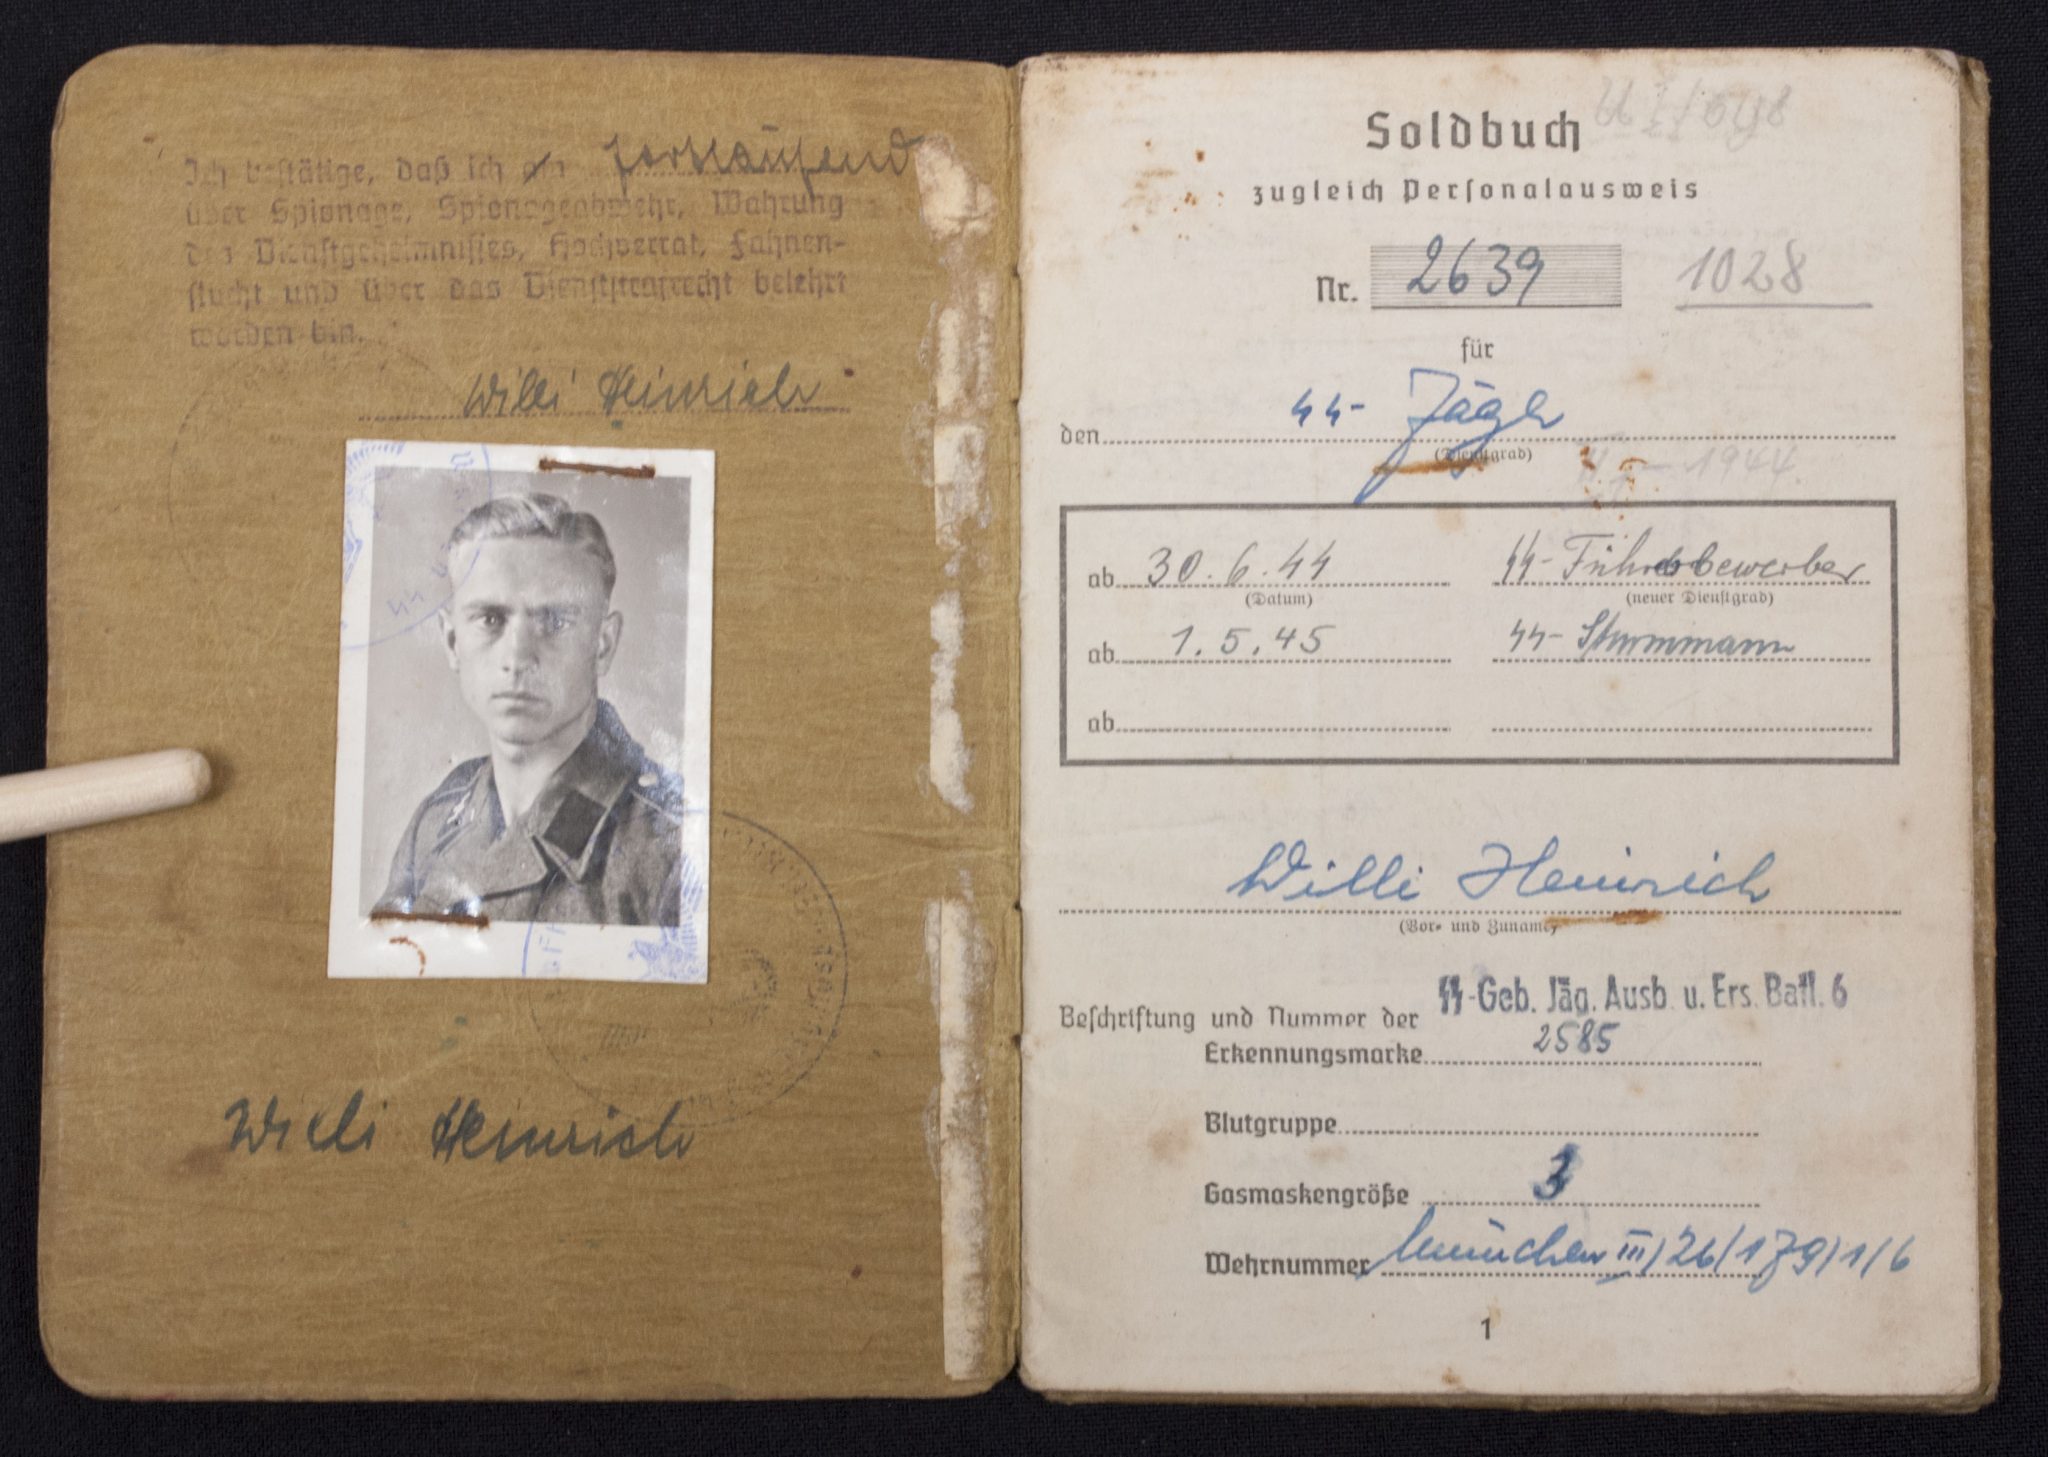 Ich bestätige, daß ich am fortlaufend
über Spionage, Spionageabwehr, Wahrung
des Dienstgeheimnisses, Hochverrat, Fahnen-
flucht und über das Dienststrafrecht belehrt
worden bin.
Willi Heinrich
Willi Heinrich
Soldbuch
zugleich Personalausweis
Nr. 2639 1028
für
den SS-Jäger
(Dienstgrad)
1944.
ab 30.6.44 SS-Führerbewerber
(Datum) (neuer Dienstgrad)
ab 1.5.45 SS-Sturmmann
ab
Willi Heinrich
(Vor- und Zuname)
SS-Geb. Jäg. Ausb. u. Ers. Batl. 6
Beschriftung und Nummer der
Erkennungsmarke 2585
Blutgruppe
Gasmaskengröße 3
Wehrnummer München III/26/179/1/6
1